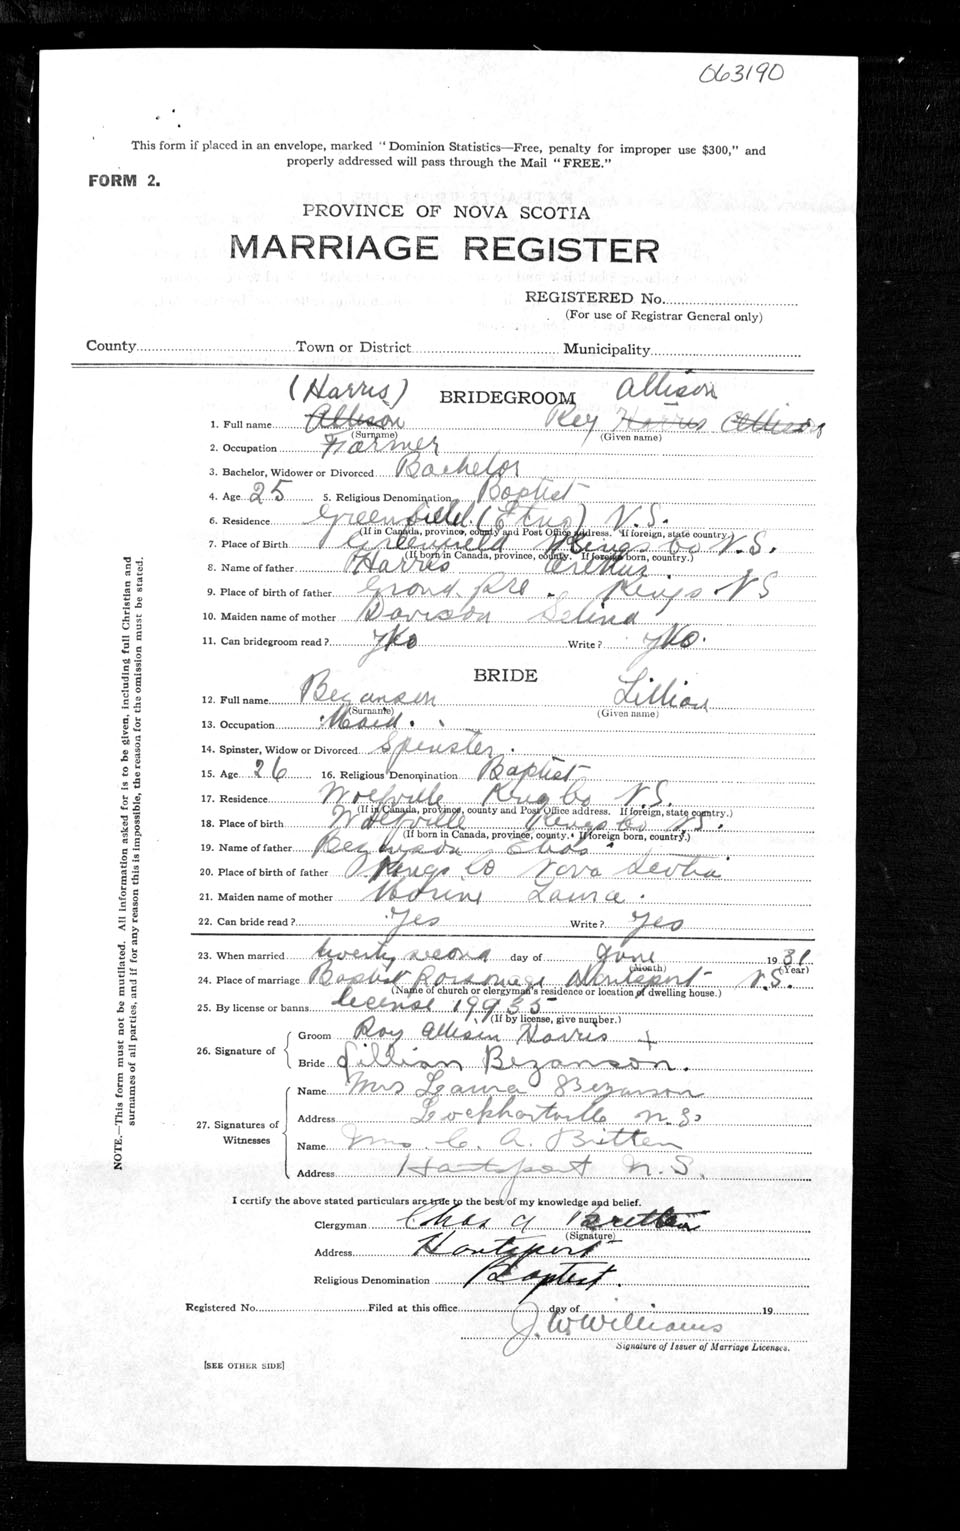 063190
This form if placed in an envelope, marked "Dominion Statistics—Free, penalty for improper use $300," and
properly addressed will pass through the Mail "FREE."
FORM 2.
PROVINCE OF NOVA SCOTIA
MARRIAGE REGISTER
REGISTERED No.
(For use of Registrar General only)
County Town or District Municipality
(Harris) BRIDEGROOM Allison
1. Full name Allison Roy Harris Allison
(Surname) (Given name)
2. Occupation Farmer
3. Bachelor, Widower or Divorced Bachelor
4. Age 25 5. Religious Denomination Baptist
6. Residence Greenfield N.S.
(If in Canada, province, county and Post Office address. If foreign, state country.)
7. Place of Birth Greenfield Kings Co N.S.
(If born in Canada, province, county. If foreign born, country.)
8. Name of father Harris
9. Place of birth of father Grand Pre Kings NS
10. Maiden name of mother Davison Selina
11. Can bridegroom read? No Write? No
BRIDE
12. Full name Bezanson Lillian
(Surname) (Given name)
13. Occupation Maid
14. Spinster, Widow or Divorced Spinster
15. Age 26 16. Religious Denomination Baptist
17. Residence Wolfville Kings Co N.S.
(If in Canada, province, county and Post Office address. If foreign, state country.)
18. Place of birth Wolfville Kings Co N.S.
(If born in Canada, province, county. If foreign born, country.)
19. Name of father Bezanson
20. Place of birth of father Kings Co Nova Scotia
21. Maiden name of mother Laura
22. Can bride read? Yes Write? Yes
23. When married twenty second day of June 1931
(Month) (Year)
24. Place of marriage Baptist Parsonage Hantsport N.S.
(Name of church or clergyman's residence or location of dwelling house.)
25. By license or banns license 19955
(If by license, give number.)
26. Signature of Groom Roy Allison Harris +
Bride Lillian Bezanson.
27. Signatures of Witnesses Name Mrs Laura Bezanson
Address Lockhartville N.S.
Name Mrs. C. A. Britten
Address Hantsport N.S.
I certify the above stated particulars are true to the best of my knowledge and belief.
Clergyman Chas A Britten
(Signature)
Address Hantsport
Religious Denomination Baptist.
Registered No. Filed at this office day of 19
J. W. Williams
Signature of Issuer of Marriage Licenses.
[SEE OTHER SIDE]
NOTE.—This form must not be mutilated. All information asked for is to be given, including full Christian and
surnames of all parties, and if for any reason this is impossible, the reason for the omission must be stated.